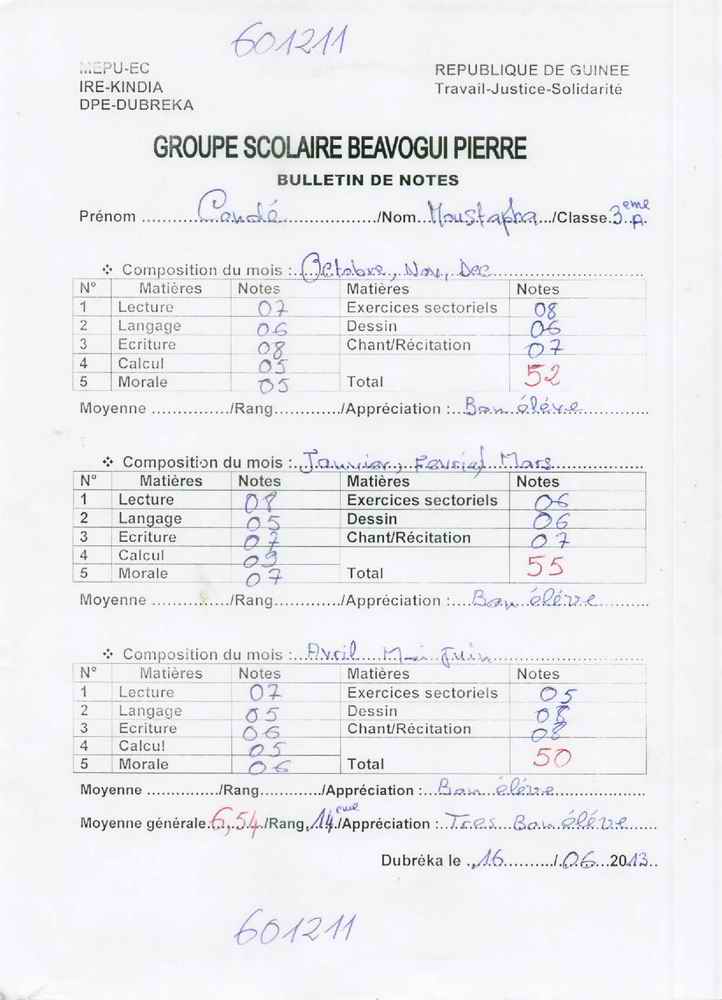 601211
MEPU-EC REPUBLIQUE DE GUINEE
IRE-KINDIA Travail-Justice-Solidarité
DPE-DUBREKA
GROUPE SCOLAIRE BEAVOGUI PIERRE
BULLETIN DE NOTES
Prénom ...Condé.../Nom...Moustapha.../Classe.3eme A.
❖ Composition du mois :..Octobre, Nov, Dec...
N° Matières Notes Matières Notes
1 Lecture 07 Exercices sectoriels 08
2 Langage 06 Dessin 06
3 Ecriture 08 Chant/Récitation 07
4 Calcul 05
5 Morale 05 Total 52
Moyenne ............../Rang............./Appréciation :...Bon éléve...
❖ Composition du mois :..Janvier, Fevrier Mars...
N° Matières Notes Matières Notes
1 Lecture 08 Exercices sectoriels 06
2 Langage 05 Dessin 06
3 Ecriture 07 Chant/Récitation 07
4 Calcul 09
5 Morale 07 Total 55
Moyenne ............../Rang............./Appréciation :...Bon éléve...
❖ Composition du mois :..Avril Mai Juin...
N° Matières Notes Matières Notes
1 Lecture 07 Exercices sectoriels 05
2 Langage 05 Dessin 08
3 Ecriture 06 Chant/Récitation 08
4 Calcul 05
5 Morale 06 Total 50
Moyenne ............../Rang............./Appréciation :...Bon éléve...
Moyenne générale.6,54./Rang.14eme/Appréciation :..Tres Bon éléve...
Dubréka le ..16........./.06...2013..
601211